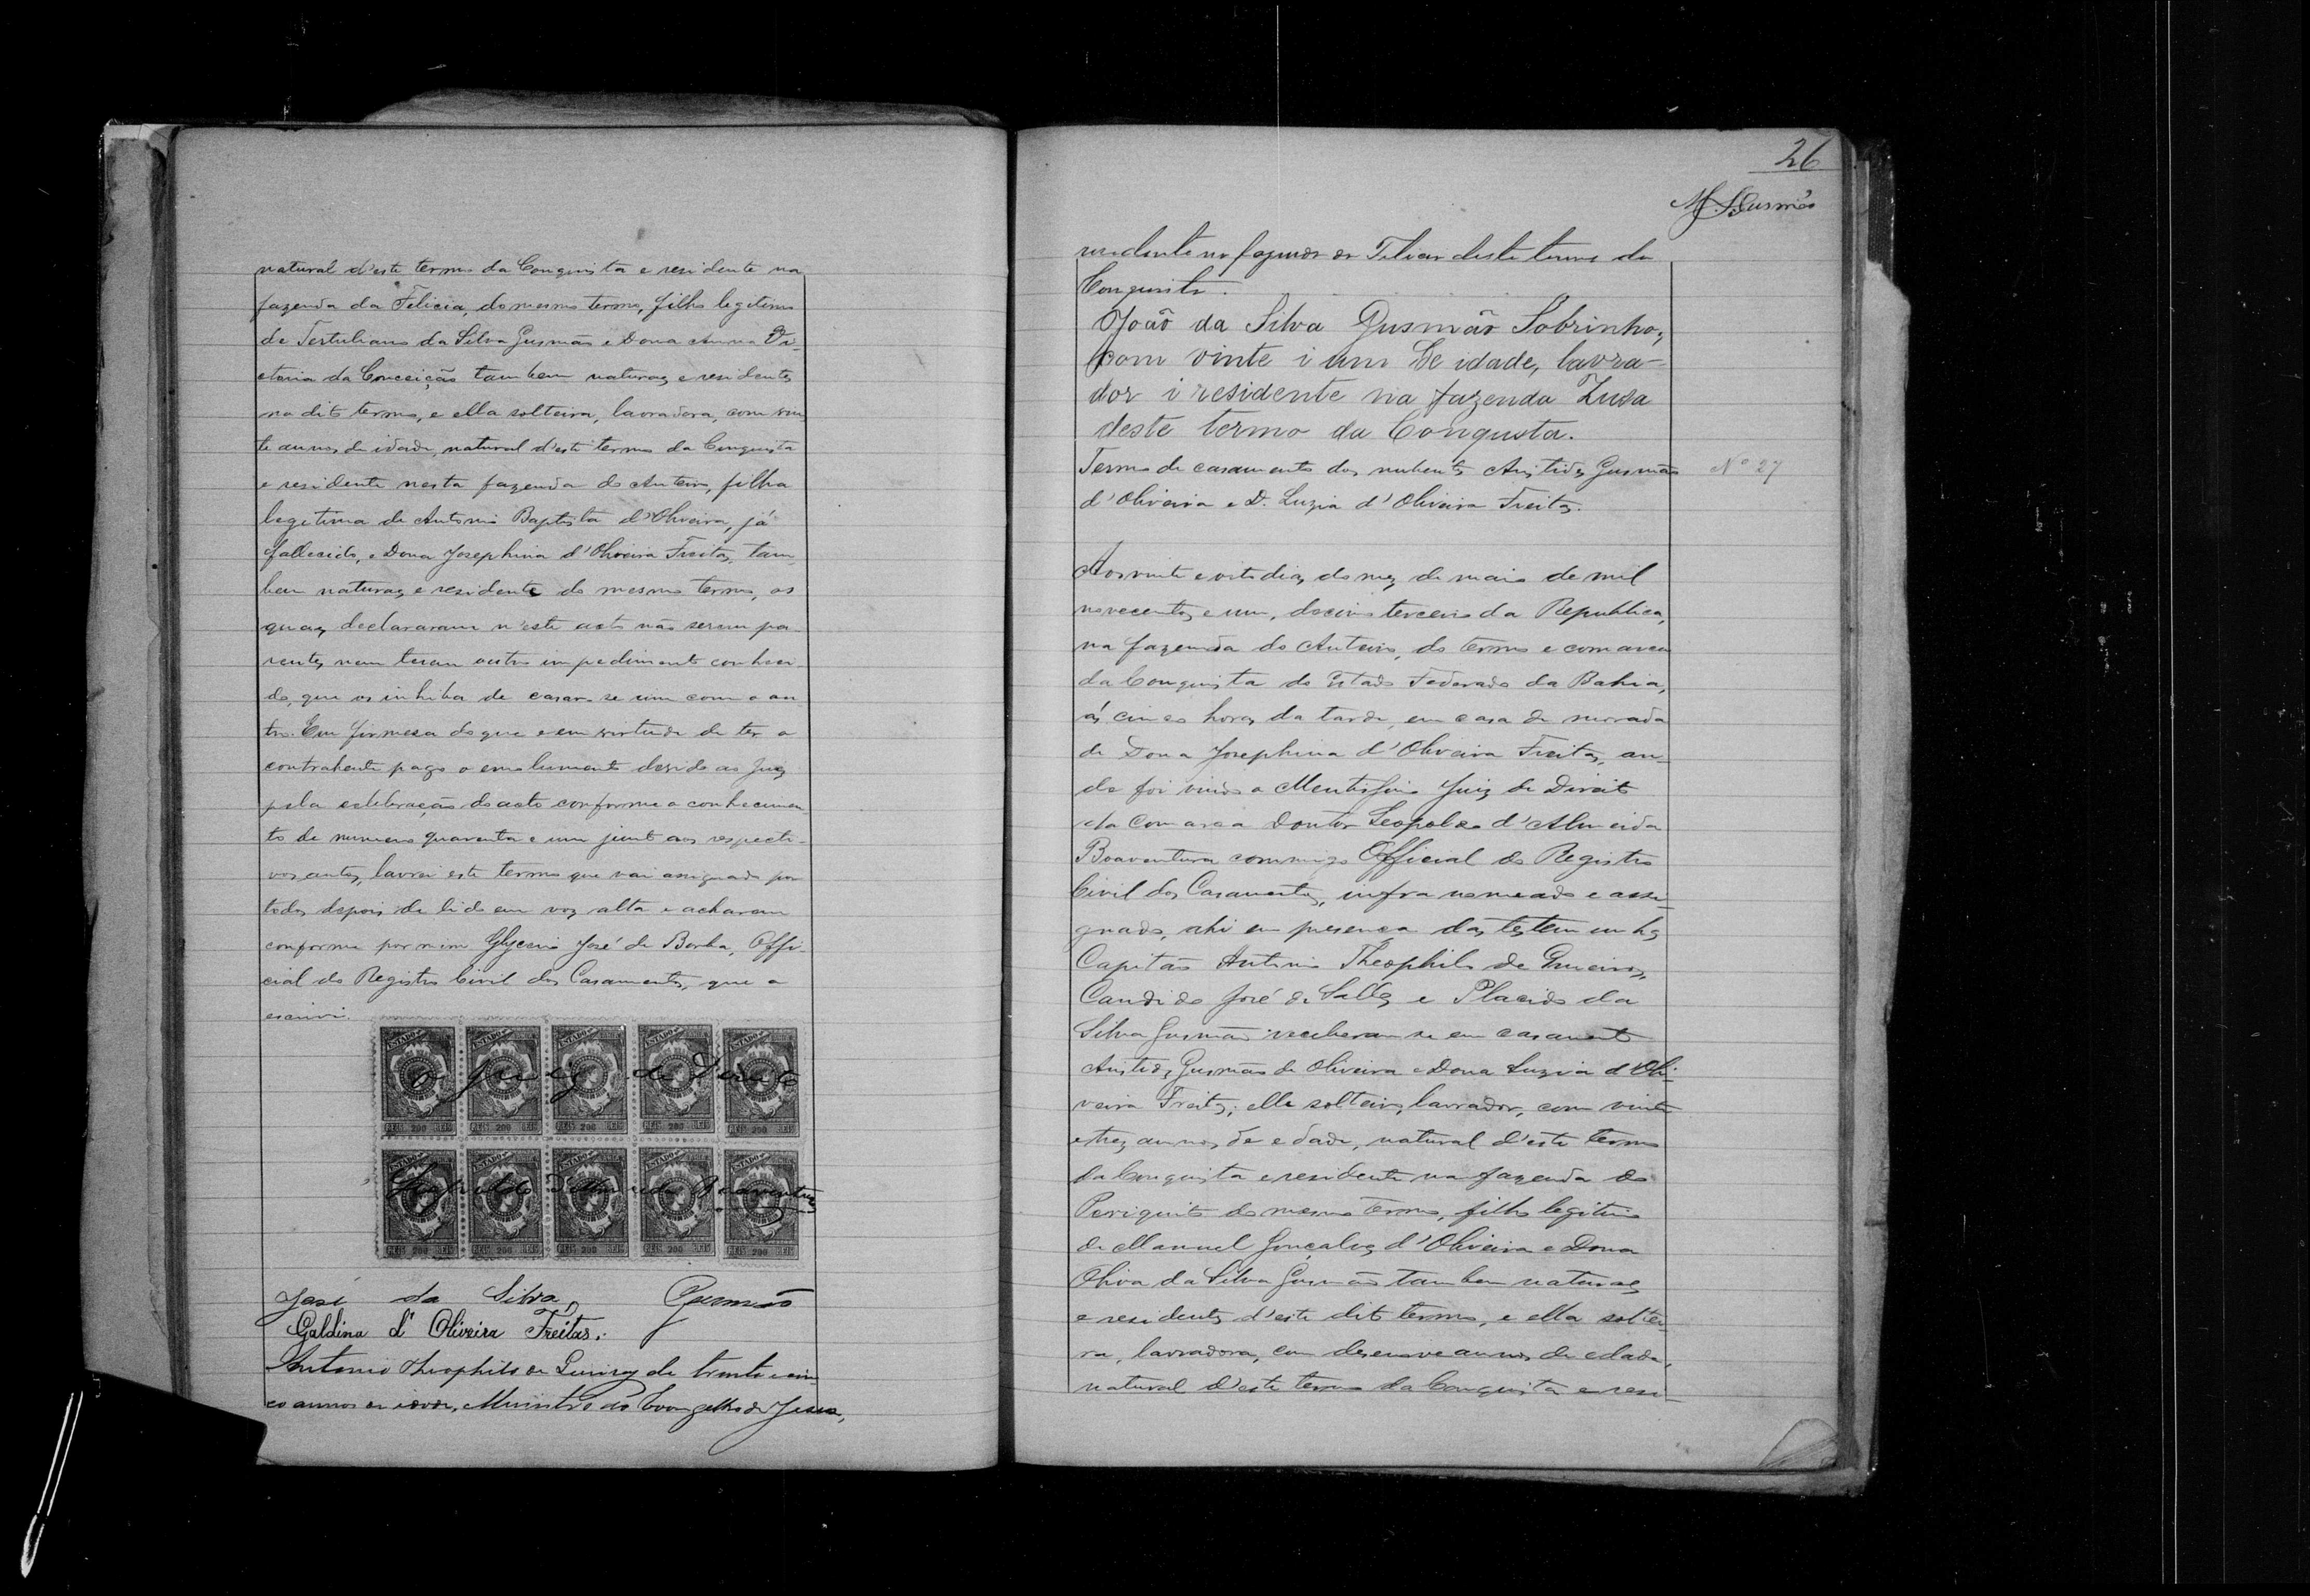 natural d'este termo da Conquista e residente na
fazenda da Felicia, do mesmo termo, filho legitimo
de Tertuliano da Silva Gusmão e Dona Anna Vi-
ctoria da Conceição tambem naturaes e residentes
no dito termo, e ella solteira, lavradora, com vin-
te annos de idade, natural d'este termo da Conquista
e residente nesta fazenda do Anteiro, filha
legitima de Antonio Baptista d'Oliveira, já
fallecido, e Dona Josephina d'Oliveira Freitas, tam-
bem naturaes e residente do mesmo termo, os
quaes declararam n'este acto não serem pa-
rentes, nem terem outro impedimento conheci-
do, que os inhiba de casar-se um com o ou-
tro. Em firmesa do que e em virtude de ter o
contrahente pago o emolumento devido ao Juiz
pela celebração do acto conforme o conhecimen-
to de numero quarenta e um junto aos respecti-
vos autos, lavrei este termo que vai assignado por
todos depois de lido em voz alta e acharem
conforme por mim Glycerio José de Borba, Offi-
cial do Registro Civil dos Casamentos, que o
escrevi.
ESTADO ESTADO ESTADO ESTADO ESTADO
O Juiz de Direito
REIS 200 REIS REIS 200 REIS REIS 200 REIS REIS 200 REIS REIS 200 REIS
ESTADO ESTADO ESTADO ESTADO ESTADO
Leopoldo d'Almeida Boaventura
REIS 200 REIS REIS 200 REIS REIS 200 REIS REIS 200 REIS REIS 200 REIS
José da Silva Gusmão
Galdina d' Oliveira Freitas.
Antonio Theophilo de Queiroz de trinta e cin
co annos de idade, Ministro do Evangelho de Jesus,
26
Gusmão
residente na fazenda da Felicia deste termo da
Conquista.
João da Silva Gusmão Sobrinho,
com vinte i um de idade, lavra-
dor i residente na fazenda
deste termo da Conquista.
Termo de casamento dos nubentes Aristides Gusmão
Nº 27
d'Oliveira e D. Luzia d'Oliveira Freitas.
Aos vinte e oito dias do mez de maio de mil
novecentos e um, decimo terceiro da Republica,
na fazenda do Anteiro, do termo e comarca
da Conquista do Estado Federado da Bahia,
ás cinco horas da tarde, em casa de morada
de Dona Josephina d'Oliveira Freitas, on-
de foi vindo o Meritissimo Juiz de Direito
da Comarca Doutor Leopoldo d'Almeida
Boaventura commigo Official do Registro
Civil dos Casamentos, infra nomeado e assi-
gnado, ahi em presença das testemunhas
Capitão Antonio Theophilo de Queiroz,
Candido José de Salles e Placido da
Silva Gusmão receberam-se em casamento
Aristides Gusmão de Oliveira e Dona Luzia d'Oli-
veira Freitas; elle solteiro, lavrador, com vinte
e trez annos de edade, natural d'este termo
da Conquista e residente na fazenda do
Periquito do mesmo termo, filho legitimo
de Manuel Gonçalves d'Oliveira e Dona
Oliva da Silva Gusmão tambem naturaes
e residentes d'este dito termo, e ella soltei-
ra, lavradora, com desenove annos de edade,
natural d'este termo da Conquista e resi-